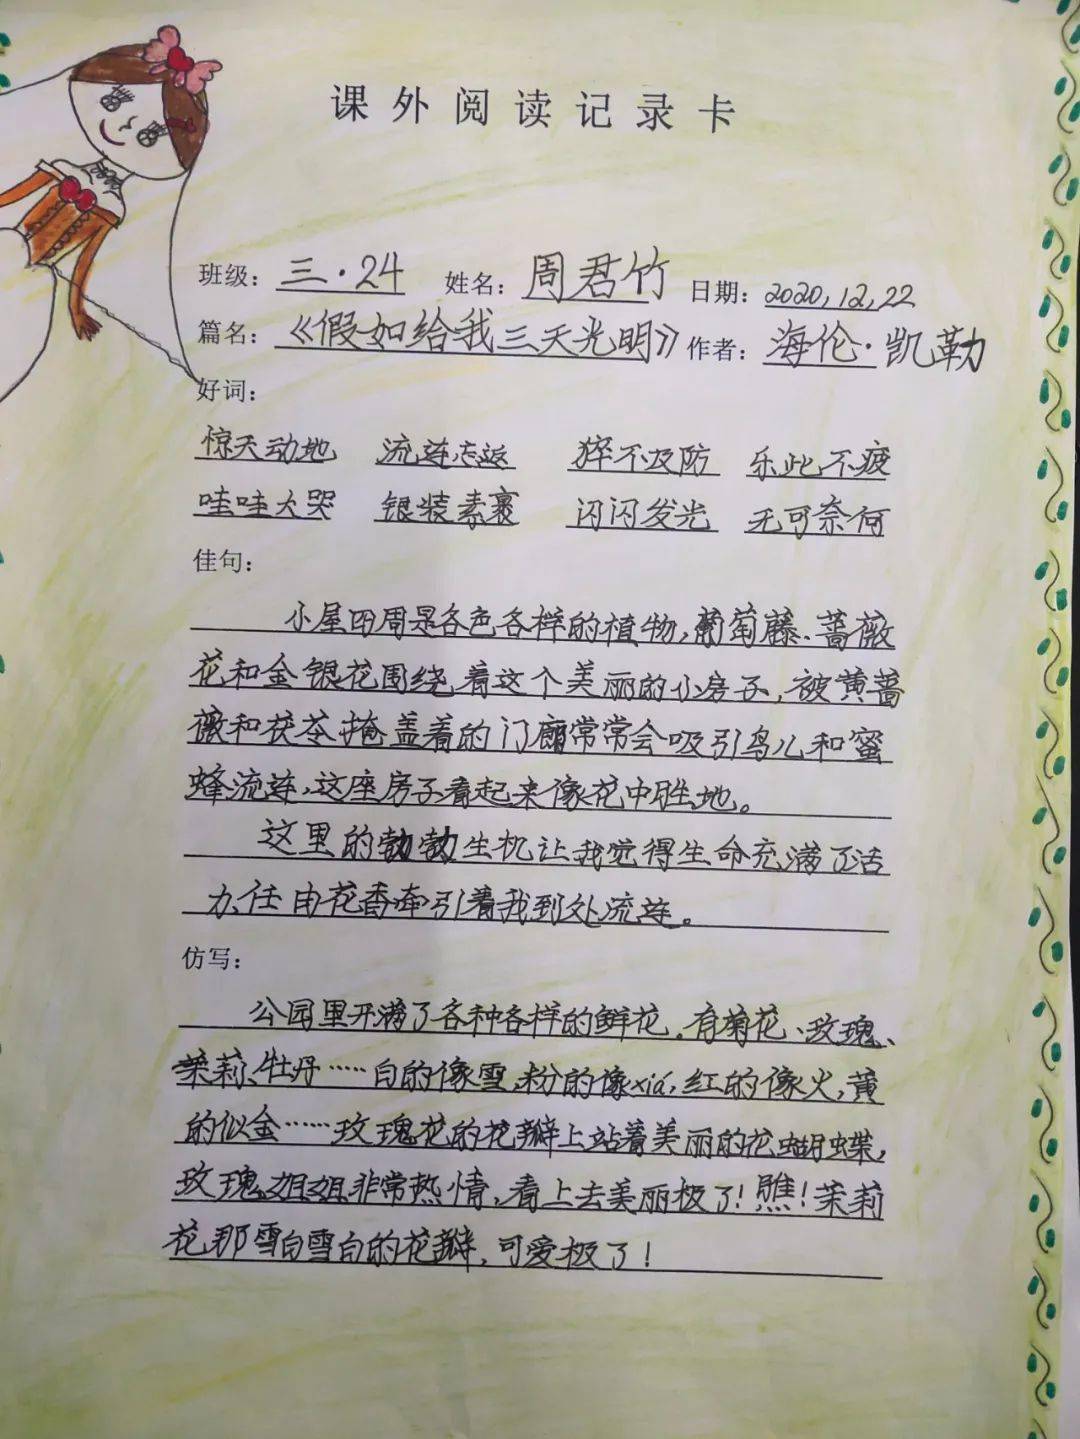 课外阅读记录卡
班级：三·24 姓名：周君竹 日期：2020,12,22
篇名：《假如给我三天光明》作者：海伦·凯勒
好词：
惊天动地 流连忘返 猝不及防 乐此不疲
哇哇大哭 银装素裹 闪闪发光 无可奈何
佳句：
小屋四周是各色各样的植物，葡萄藤、蔷薇
花和金银花围绕着这个美丽的小房子，被黄蔷
薇和茯苓掩盖着的门廊常常会吸引鸟儿和蜜
蜂流连，这座房子看起来像花中胜地。
这里的勃勃生机让我觉得生命充满了活
力，任由花香牵引着我到处流连。
仿写：
公园里开满了各种各样的鲜花，有菊花、玫瑰、
茉莉、牡丹……白的像雪，粉的像xiá，红的像火，黄
的似金……玫瑰花的花瓣上站着美丽的花蝴蝶，
玫瑰姐姐非常热情，看上去美丽极了！瞧！茉莉
花那雪白雪白的花瓣，可爱极了！